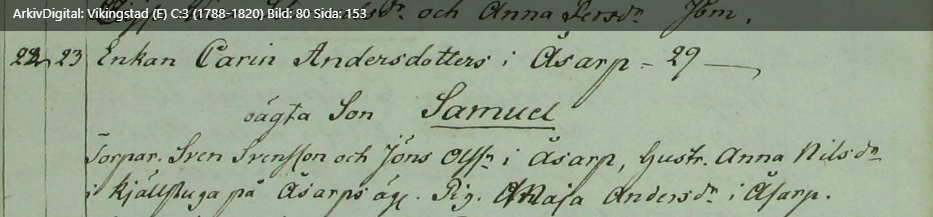 ArkivDigital: Vikingstad (E) C:3 (1788-1820) Bild: 80 Sida: 153
och Anna Persdr Jbm.
22 23 Enkan Carin Andersdotters i Åsarp - 29 —
oägta Son Samuel
Torpar. Sven Svensson och Jöns Olssn i Åsarp, Hustr. Anna Nilsdr
i Kjällstuga på Åsarps äg. Pig. Maja Andersdr i Åsarp.